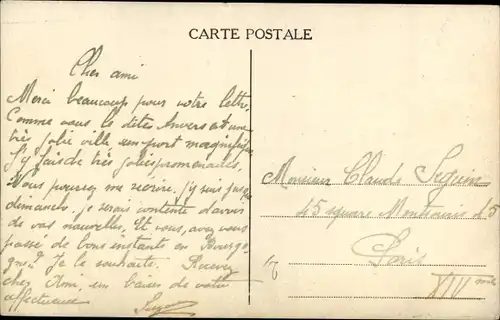 CARTE POSTALE
Cher ami
Merci beaucoup pour votre lettre,
Comme vous le dites Anvers est une
très jolie ville, son port magnifique
J'y fais de très jolies promenades,
Vous pourrez me écrire, j'y suis jusque
dimanche. je serais contente d'avoir
de vos nouvelles. Et vous, avez vous
passé de bons instants en Bourgo
gne? Je le souhaite. Recevez
cher Ami, un baiser de votre
affectueuse
Monsieur Claude Seguin
45 square Montsouris 45
Paris
XIV me